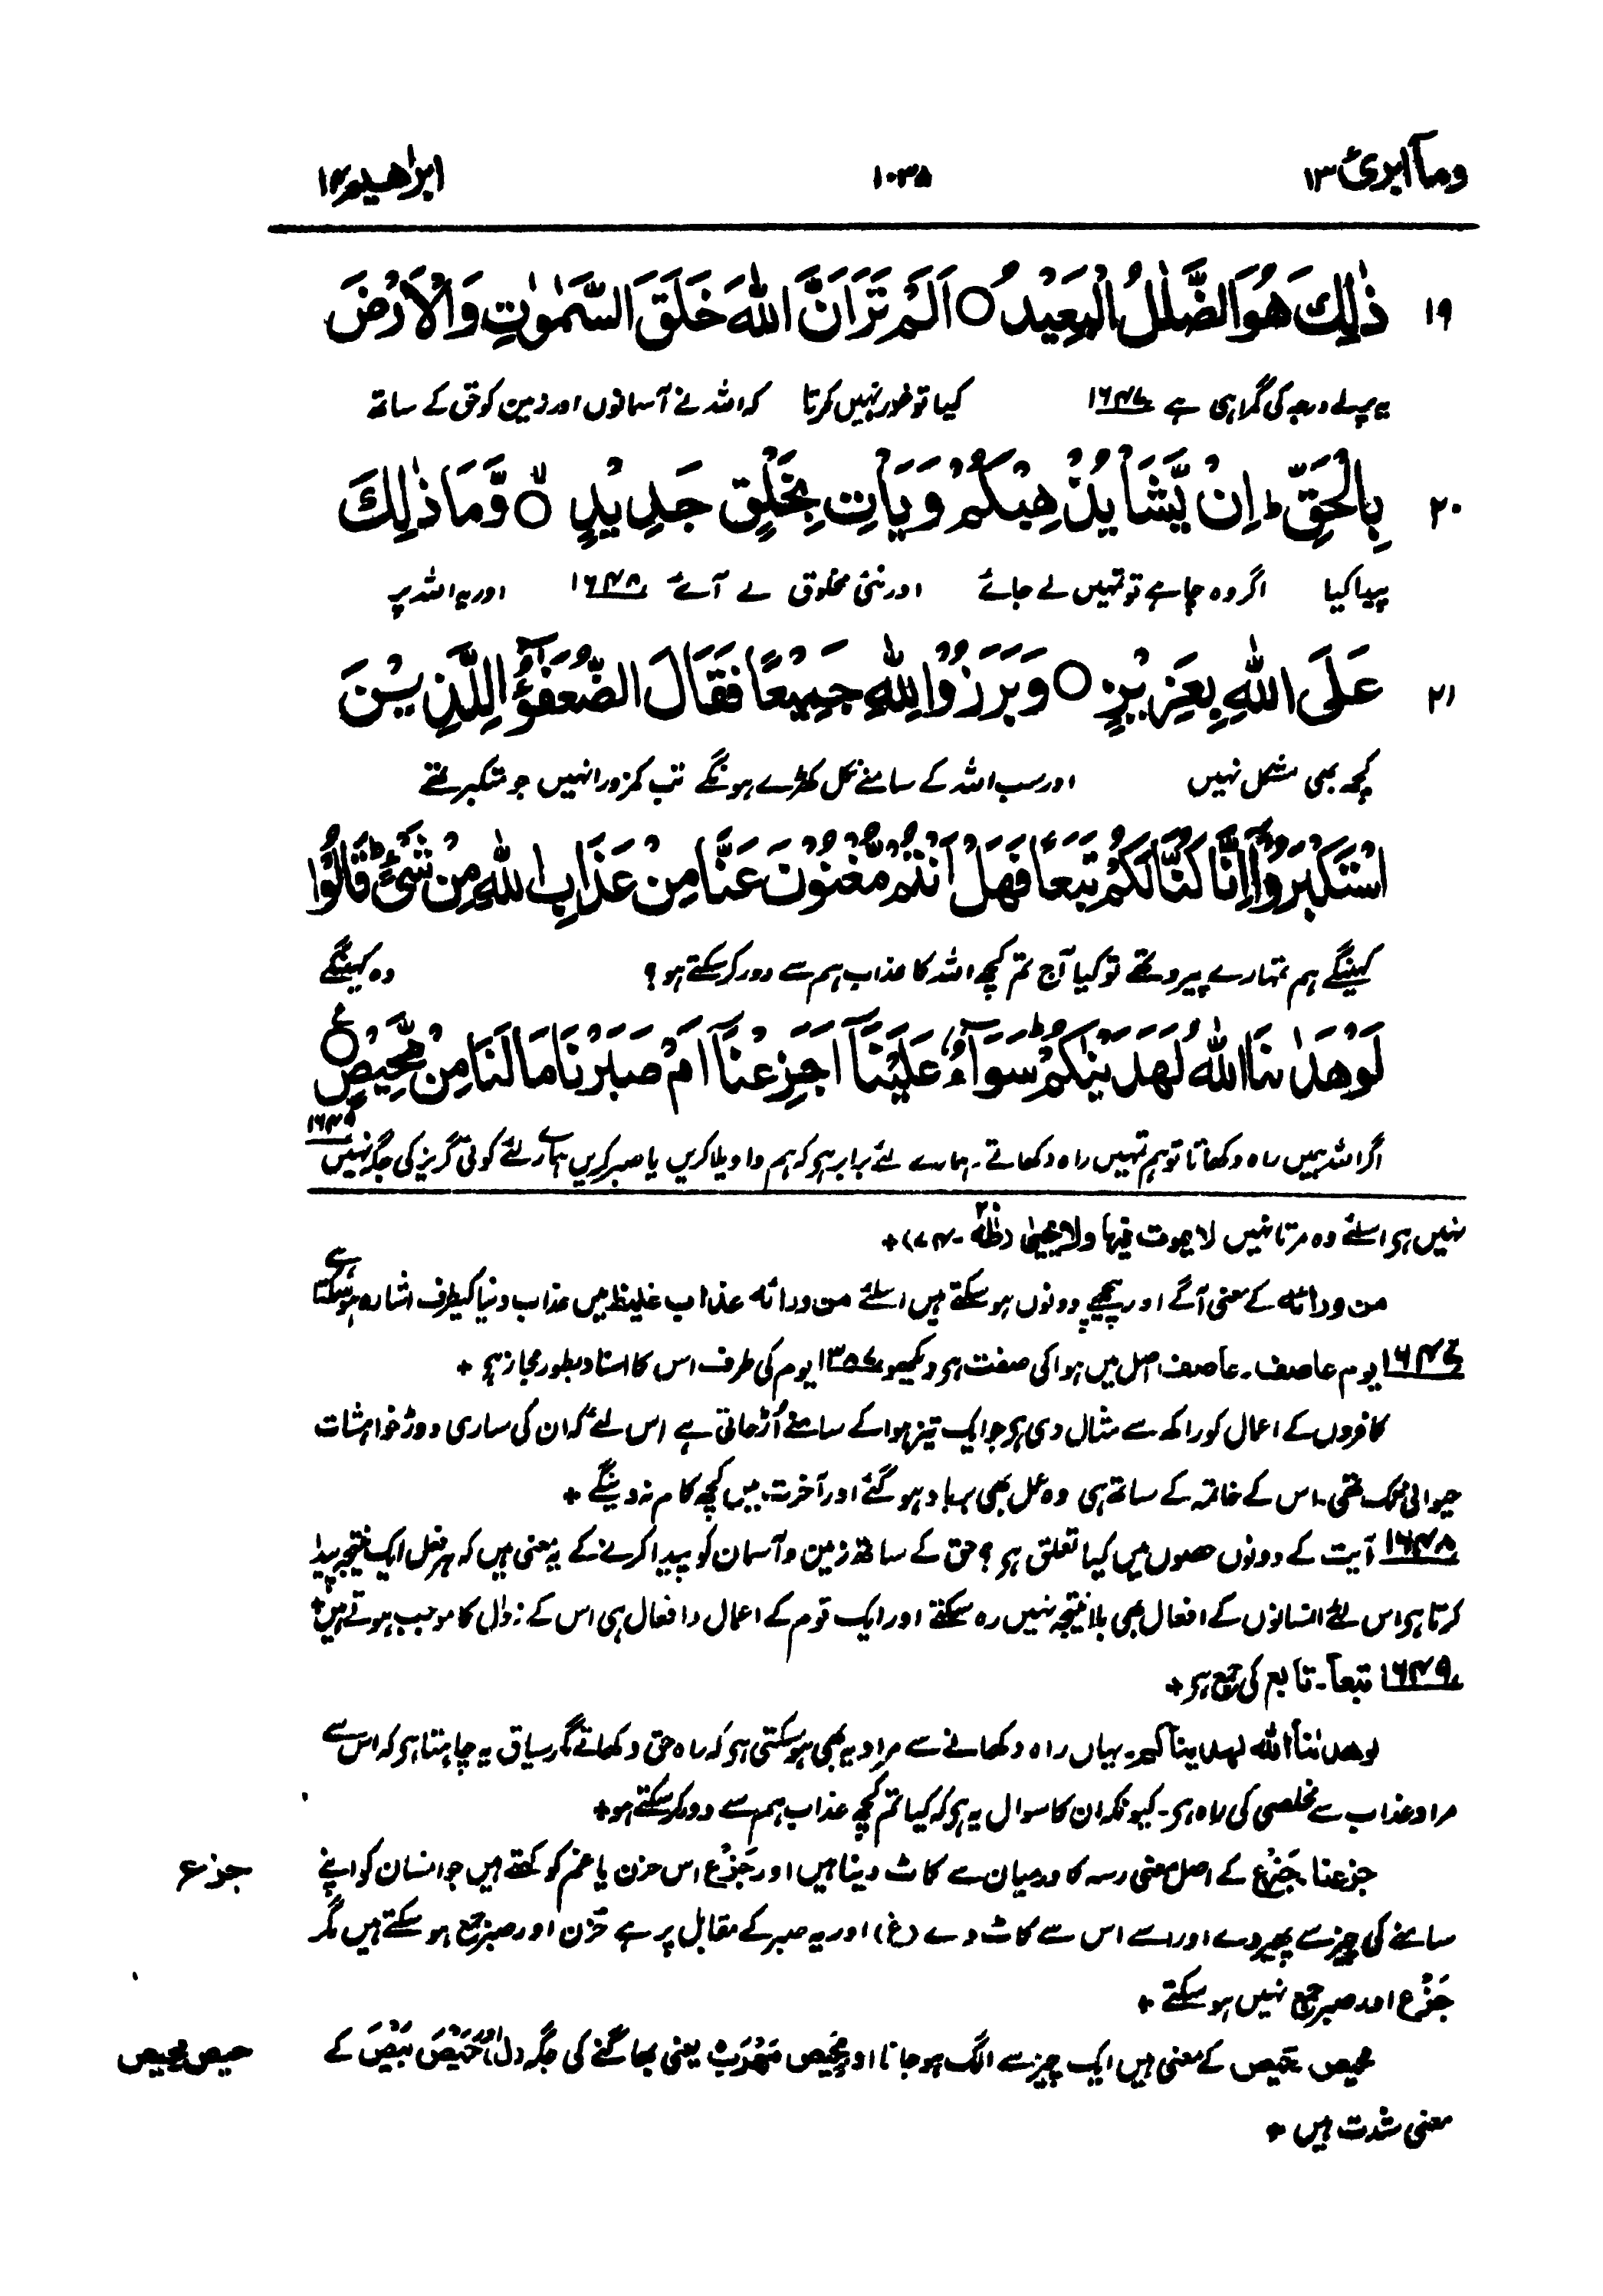 ومآ ابرئ ۱۳ ۱۰۳۵ ابراھیم ۱۴
۱۹ ذٰلِكَ هُوَ الضَّلٰلُ الْبَعِيْدُ ○ اَلَمْ تَرَ اَنَّ اللّٰهَ خَلَقَ السَّمٰوٰتِ وَالْاَرْضَ
یہ پرلے درجہ کی گمراہی ہے ۱۶۴۷ کیا تو غور نہیں کرتا کہ اللہ نے آسمانوں اور زمین کو حق کے ساتھ
۲۰ بِالْحَقِّ ؕ اِنْ يَّشَاْ يُذْهِبْكُمْ وَيَاْتِ بِخَلْقٍ جَدِيْدٍ ○ۙ وَّمَا ذٰلِكَ
پیدا کیا اگر وہ چاہے تو تمہیں لے جائے اور نئی مخلوق لے آئے ۱۶۴۸ اور یہ اللہ پر
۲۱ عَلَى اللّٰهِ بِعَزِيْزٍ ○ وَبَرَزُوْا لِلّٰهِ جَمِيْعًا فَقَالَ الضُّعَفٰٓؤُا لِلَّذِيْنَ
کچھ بھی مشکل نہیں اور سب اللہ کے سامنے نکل کھڑے ہونگے تب کمزور انہیں جو متکبر تھے
اسْتَكْبَرُوْٓا اِنَّا كُنَّا لَكُمْ تَبَعًا فَهَلْ اَنْتُمْ مُّغْنُوْنَ عَنَّا مِنْ عَذَابِ اللّٰهِ مِنْ شَيْءٍ ؕ قَالُوْا
کہینگے ہم تمہارے پیرو تھے تو کیا آج تم کچھ اللہ کا عذاب ہم سے دور کر سکتے ہو ؟ وہ کہینگے
لَوْ هَدٰىنَا اللّٰهُ لَهَدَيْنٰكُمْ ؕ سَوَآءٌ عَلَيْنَآ اَجَزِعْنَآ اَمْ صَبَرْنَا مَا لَنَا مِنْ مَّحِيْصٍ ○ ع
اگر اللہ ہمیں راہ دکھاتا تو ہم تمہیں راہ دکھاتے ۔ ہمارے لئے برابر ہے کہ ہم واویلا کریں یا صبر کریں ہمارے لئے کوئی گریز کی جگہ نہیں ۱۶۴۹
نہیں ہے اسلئے وہ مرتا نہیں لا یموت فیھا ولا یحیٰی (طٰہٰ ۔ ۷۴) +
من ورائہ کے معنی آگے اور پیچھے دونوں ہو سکتے ہیں اسلئے من ورائہ عذاب غلیظ میں عذاب دنیا کیطرف اشارہ ہو سکتا ہے
۱۶۴۷ یوم عاصف ۔ عاصف اصل میں ہوا کی صفت ہے دیکھو ۱۳۵۷ یوم کی طرف اس کا اسناد بطور مجاز ہے +
کافروں کے اعمال کو راکھ سے مثال دی ہے جو ایک تیز ہوا کے سامنے اُڑ جاتی ہے اس لئے کہ ان کی ساری دوڑ خواہشات
حیوانی تک تھی ۔ اس کے خاتمہ کے ساتھ ہی وہ عمل بھی برباد ہو گئے اور آخرت میں کچھ کام نہ دینگے +
۱۶۴۸ آیت کے دونوں حصوں میں کیا تعلق ہے ؟ حق کے ساتھ زمین و آسمان کو پیدا کرنے کے یہ معنی ہیں کہ ہر فعل ایک نتیجہ پیدا
کرتا ہے اس لئے انسانوں کے افعال بھی بلا نتیجہ نہیں رہ سکتے اور ایک قوم کے اعمال و افعال ہی اس کے زوال کا موجب ہوتے ہیں +
۱۶۴۹ تبعاً ۔ تابع کی جمع ہے +
لو ھدٰنا اللہ لھدیناکم ۔ یہاں راہ دکھانے سے مراد یہ بھی ہو سکتی ہے کہ راہ حق دکھاتے مگر سیاق یہ چاہتا ہے کہ اس سے
مراد عذاب سے مخلصی کی راہ ہے ۔ کیونکہ ان کا سوال یہ ہے کہ کیا تم کچھ عذاب ہم سے دور کر سکتے ہو +
جزعنا ۔ جَزْع کے اصل معنی رسہ کا درمیان سے کاٹ دینا ہیں اور جَزَع اس حزن یا غم کو کہتے ہیں جو انسان کو اپنے جزع
سامنے کی چیز سے پھیر دے اور اسے اس سے کاٹ دے (غ) اور یہ صبر کے مقابل پر ہے حُزن اور صبر جمع ہو سکتے ہیں مگر
جَزَع اور صبر جمع نہیں ہو سکتے +
محیص حیص کے معنی ہیں ایک چیز سے الگ ہو جانا اور محیص مَھْرَب یعنی بھاگنے کی جگہ (ل) اور حَیْصَ بَیْصَ کے حیص محیص
معنی شدت ہیں +